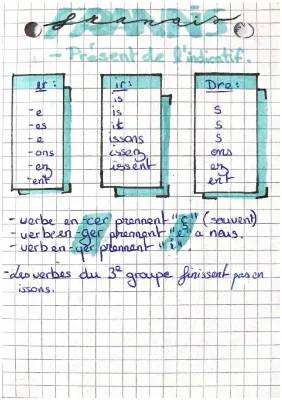 français
- Présent de l'indicatif.
er :
-e
-es
-e
-ons
-ez
-ent
ir :
is
is
it
issons
issez
issent
Dre :
s
s
s
ons
ez
ent
- verbe en -cer prennent "ç" (souvent)
- verbe en -ger prennent "e" a nous.
- verb en - yer prennent "i"
- des verbes du 3e groupe finissent pas en
issons.